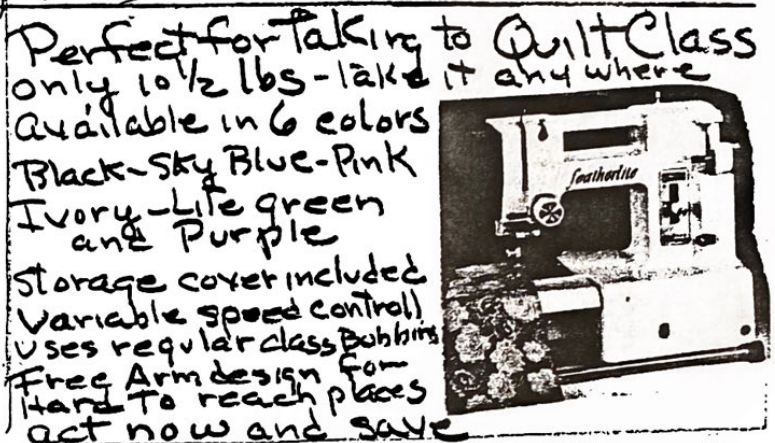 Perfect for Taking to Quilt Class
only 10 1/2 lbs - take it anywhere
available in 6 colors
Black - Sky Blue - Pink
Ivory - Lite green
and Purple
storage cover included
variable speed controll
uses regular class Bobbins
Free Arm design for
Hard To reach places
act now and save
featherlite